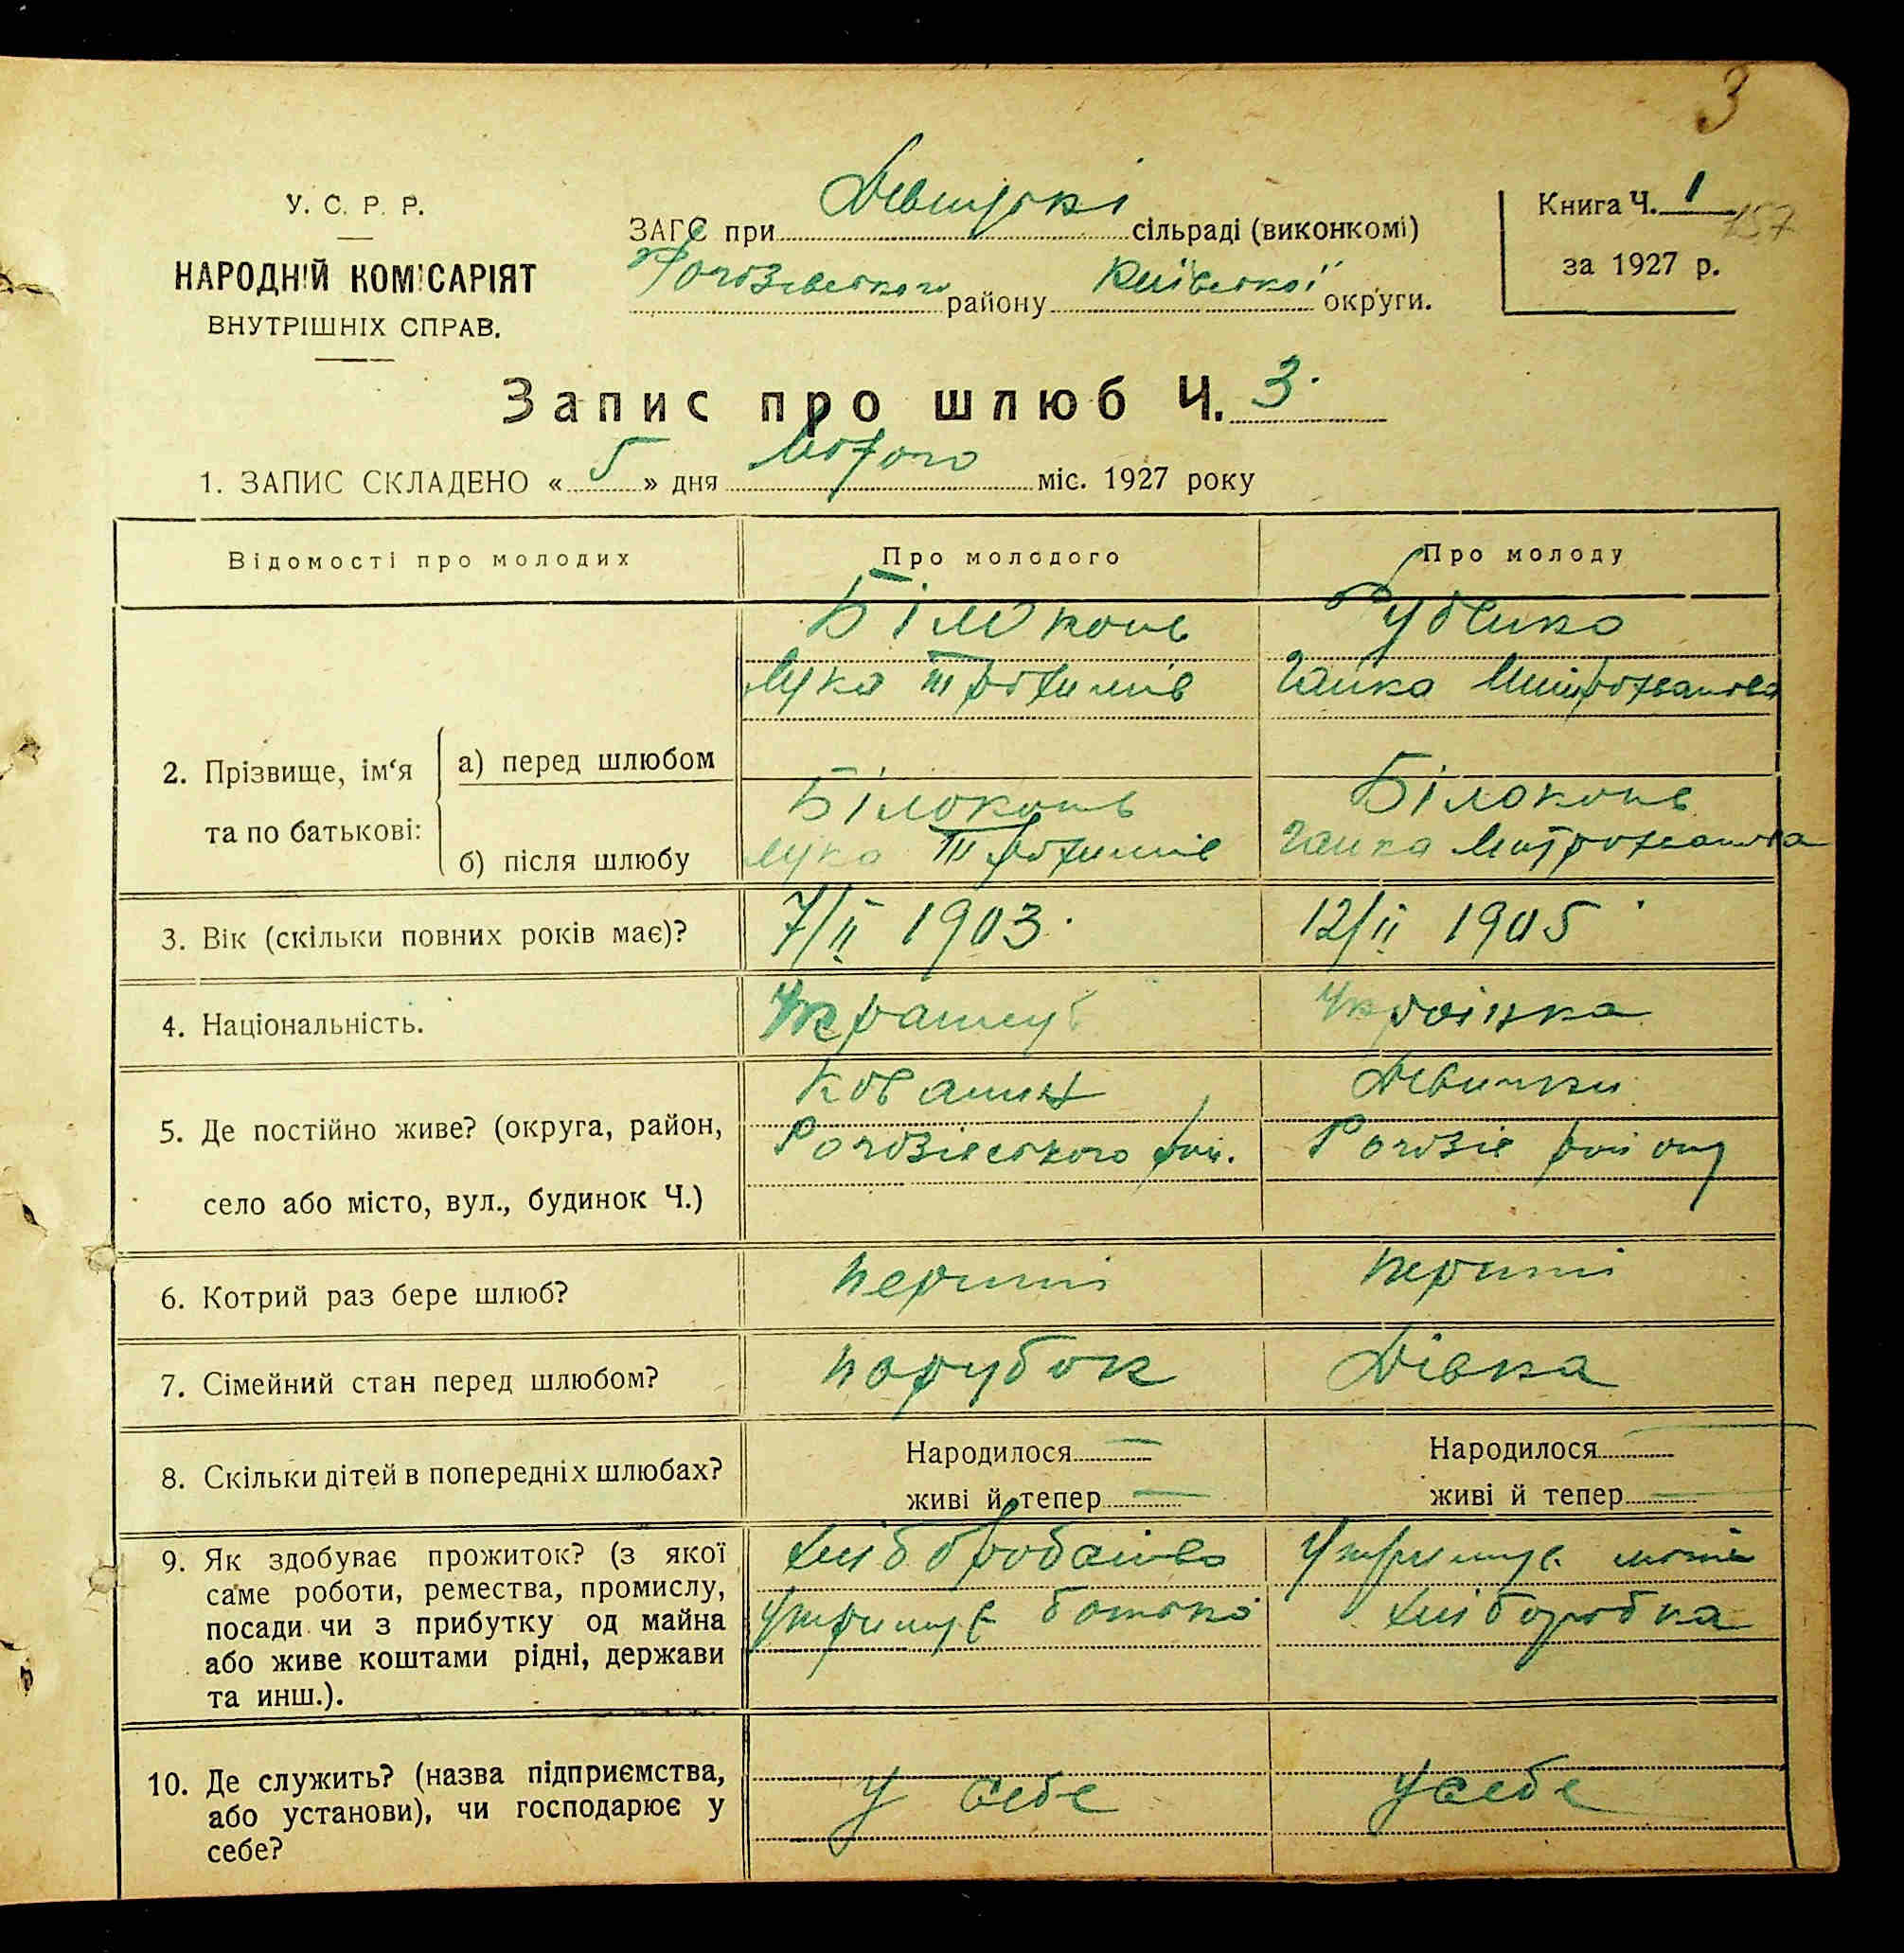 3
У. С. Р. Р.
НАРОДНІЙ КОМІСАРІЯТ
ВНУТРІШНІХ СПРАВ.
ЗАГС при Девичукі сільраді (виконкомі)
району Київської округи.
Книга Ч. 1
157
за 1927 р.
Запис про шлюб Ч. 3.
1. ЗАПИС СКЛАДЕНО « 5 » дня Лютого міс. 1927 року
Відомості про молодих Про молодого Про молоду
2. Прізвище, ім‘я та по батькові:
а) перед шлюбом
Білоконь
Лука Трохимів
Рубенко
Ганка Митрофанова
б) після шлюбу
Білоконь
Лука Трохимів
Білоконь
Ганка Митрофанова
3. Вік (скільки повних років має)? 7/ІІ 1903. 12/ІІ 1905
4. Національність. Українка
5. Де постійно живе? (округа, район,
село або місто, вул., будинок Ч.)
Ковалин
Рогозівського рай.
Девички
Рогозів району
6. Котрий раз бере шлюб? перший перший
7. Сімейний стан перед шлюбом? парубок Дівка
8. Скільки дітей в попередніх шлюбах?
Народилося —
живі й тепер —
Народилося —
живі й тепер —
9. Як здобуває прожиток? (з якої
саме роботи, ремества, промислу,
посади чи з прибутку од майна
або живе коштами рідні, держави
та инш.).
утримує батько
Утримує мати
хліборобка
10. Де служить? (назва підприємства,
або установи), чи господарює у
себе?
у себе
у себе